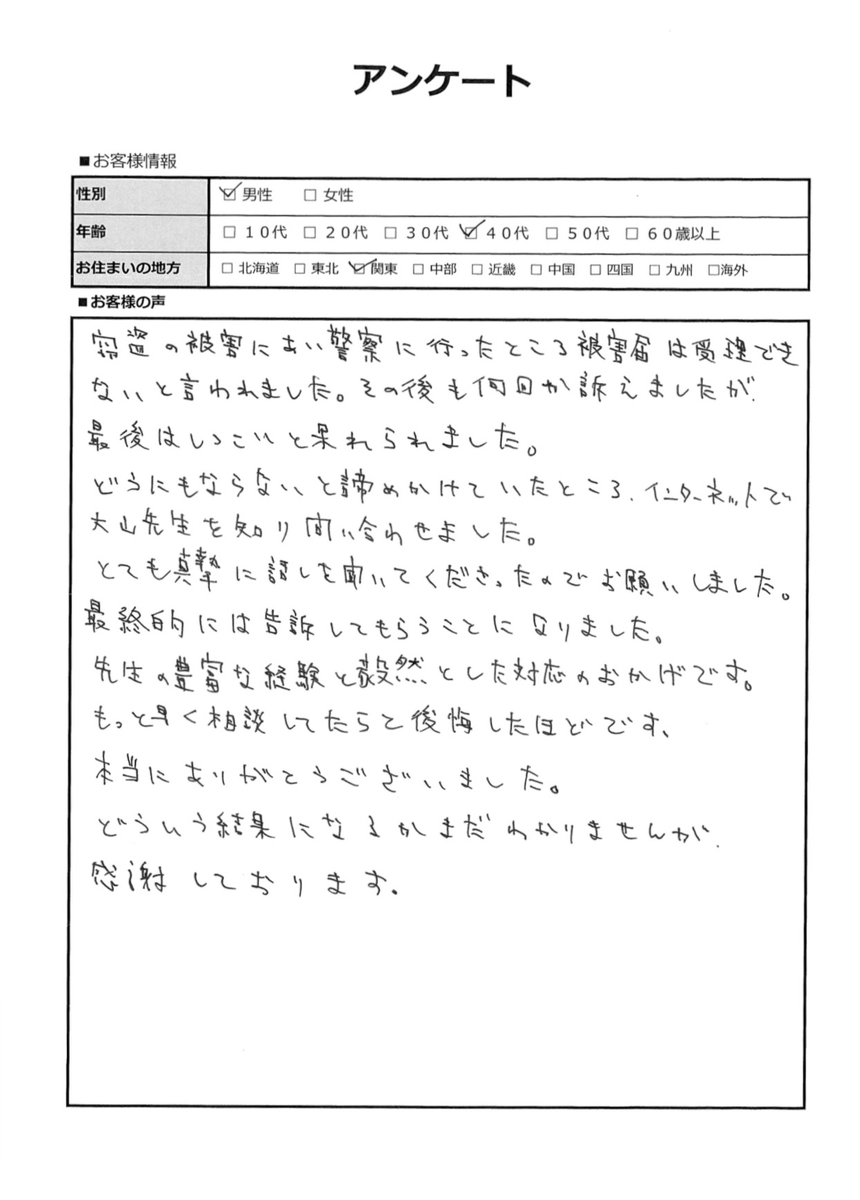 アンケート
■お客様情報
性別 ☑男性 □女性
年齢 □10代 □20代 □30代 ☑40代 □50代 □60歳以上
お住まいの地方 □北海道 □東北 ☑関東 □中部 □近畿 □中国 □四国 □九州 □海外
■お客様の声
窃盗の被害にあい警察に行ったところ被害届は受理でき
ないと言われました。その後も何回か訴えましたが、
最後はしつこいと呆れられました。
どうにもならないと諦めかけていたところ、インターネットで
大山先生を知り問い合わせました。
とても真摯に話しを聞いてくださったのでお願いしました。
最終的には告訴してもらうことになりました。
先生の豊富な経験と毅然とした対応のおかげです。
もっと早く相談してたらと後悔したほどです、
本当にありがとうございました。
どういう結果になるかまだわかりませんが、
感謝しております。